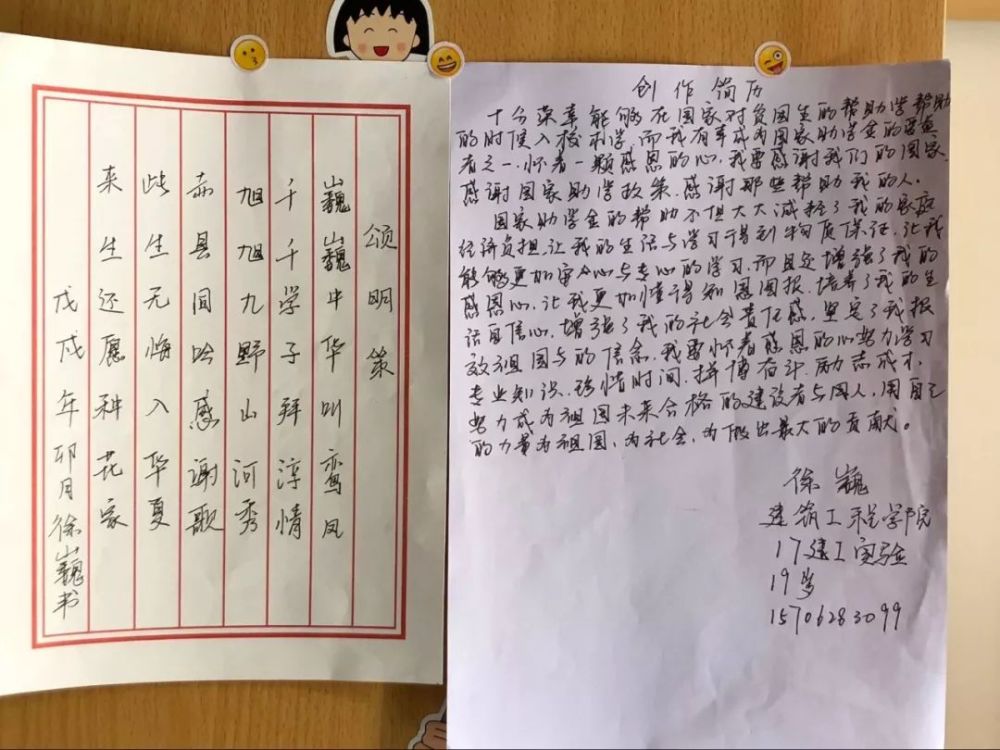 颂明策
巍巍中华叫鸾凤
千千学子拜淳情
旭旭九野山河秀
赤县闾吟感谢歌
此生无悔入华夏
来生还愿种花家
戊戌年卯月徐巍书
创作简历
十分荣幸能够在国家对贫困生的帮助学帮助
的时候入校求学,而我有幸成为国家助学金的受益
者之一.怀着一颗感恩的心,我要感谢我们的国家,
感谢国家助学政策.感谢那些帮助我的人.
国家助学金的帮助不但大大减轻了我的家庭
经济负担,让我的生活与学习得到物质保证,让我
能够更加安心与专心的学习,而且还增强了我的
感恩心,让我更加懂得知恩图报,培养了我的生
活自信心,增强了我的社会责任感,坚定了我报
效祖国与的信念,我要怀着感恩的心努力学习
专业知识,珍惜时间,拼博奋斗,励志成才,
努力成为祖国未来合格的建设者与用人,用自己
的力量为祖国,为社会,为做出最大的贡献。
徐巍
建筑工程学院
17建工实验
19岁
15706283099